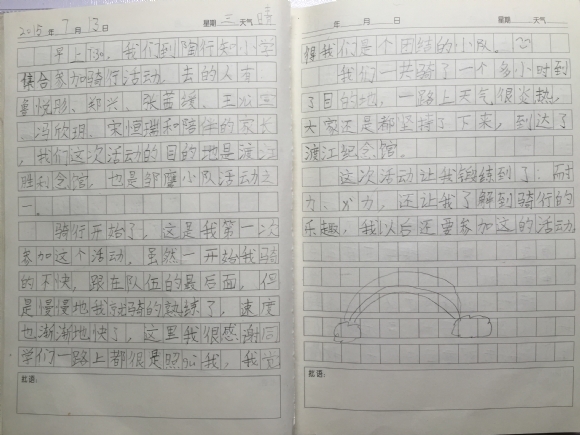 2015年7月13日 星期三 天气晴
早上7:30，我们到陶行知小学
集合参加骑行活动。去的人有
悦彤、郑兴、张茜媛、王
、冯欣玥、宋恒瑞和陪伴的家长
，我们这次活动的目的地是渡江
胜利念馆，也是邹鹰小队活动之
一。
骑行开始了，这是我第一次
参加这个活动，虽然一开始我骑
的不快，跟在队伍的最后面，但
是慢慢地我就骑的熟练了，速度
也渐渐地快了，这里我很感谢同
学们一路上都很是照心我，我觉
批语：
年 月 日 星期 天气
得我们是个团结的小队。
我们一共骑了一个多小时到
了目的地，一路上天气很炎热，
大家还是都坚持了下来，到达了
渡江纪念馆。
这次活动让我锻练到了：耐
力、力，还让我了解到骑行的
乐趣，我以后还要参加这的活动
批语：